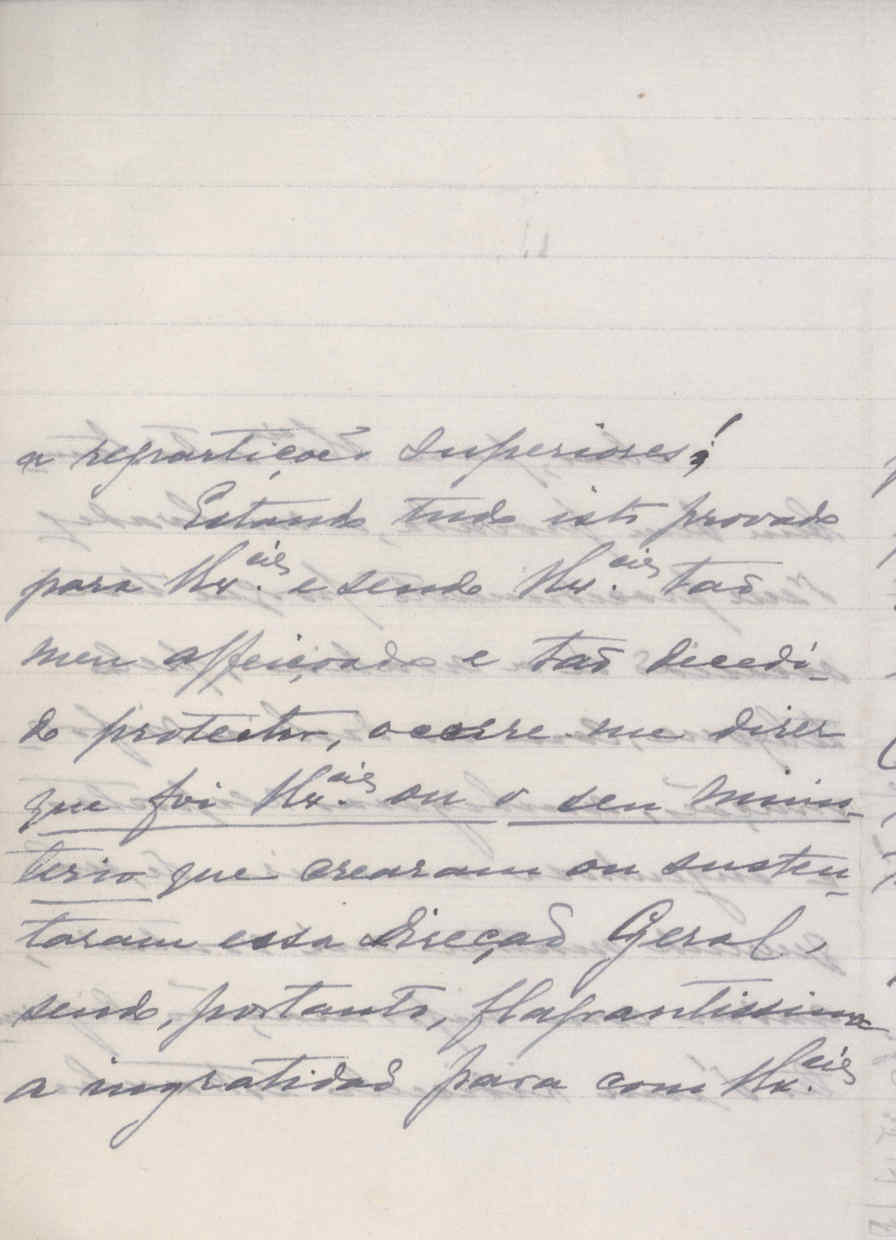 a repartições superiores!
Estando tudo isto provado
para V. Ex.cia e sendo V. Ex.cia tão
meu affeiçoado e tão decedi-
do protector, occorre-me dizer
que foi V. Ex.cia ou o seu minis-
terio que crearam ou susten-
taram essa Direcção Geral,
sendo, portanto, flagrantissima
a ingratidão para com V. Ex.cia